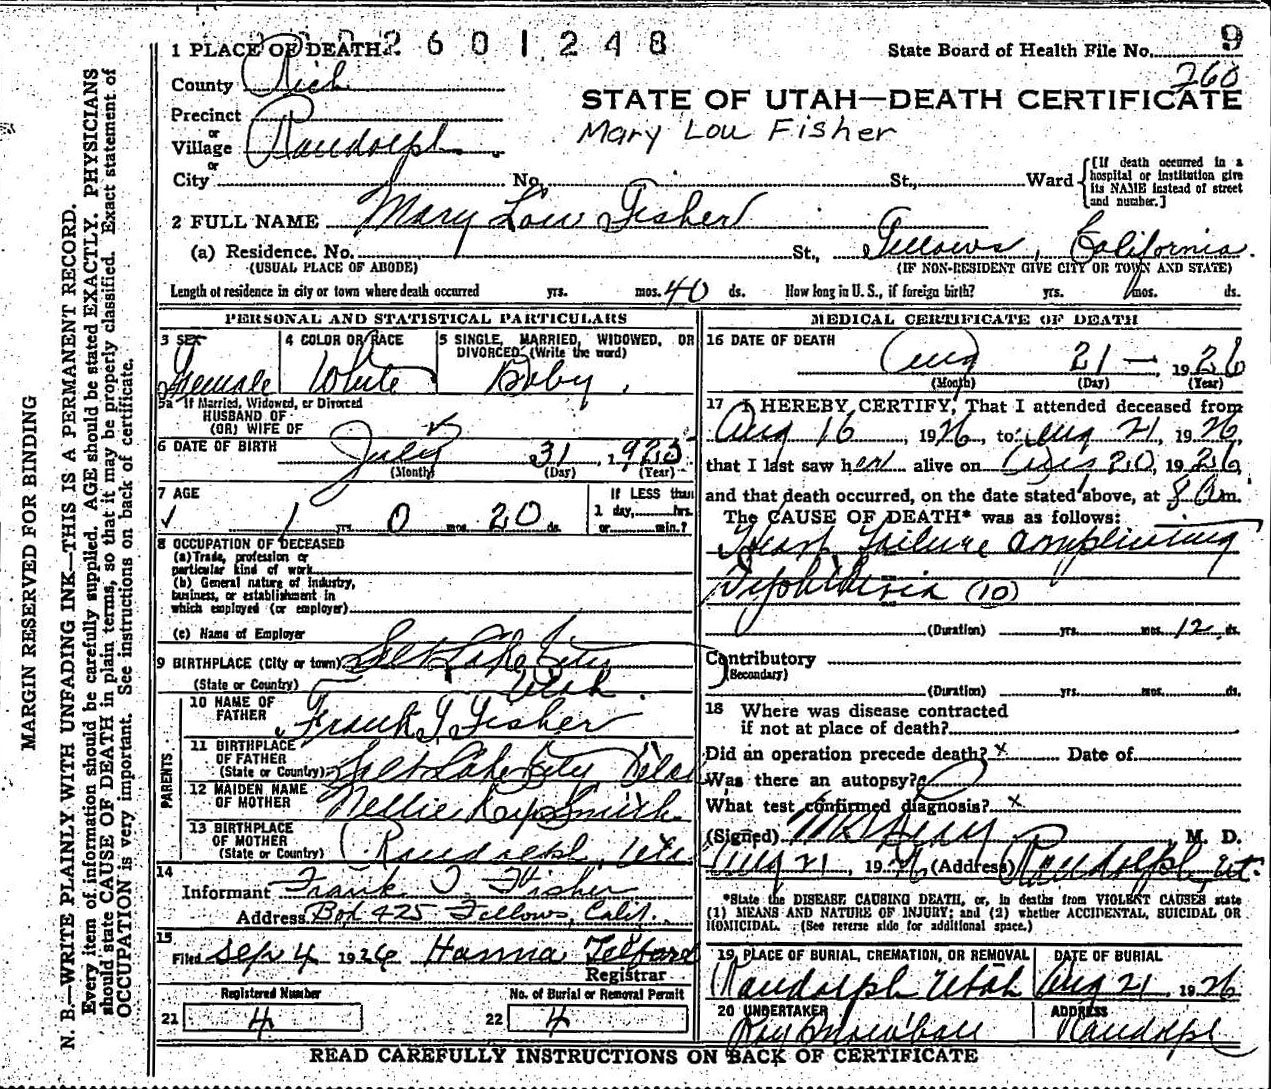 1 PLACE OF DEATH 2601248 State Board of Health File No. 9
County Rich 260
STATE OF UTAH—DEATH CERTIFICATE
Precinct
or
Village Randolph
Mary Lou Fisher
or
City No. St., Ward
[If death occurred in a hospital or institution give its NAME instead of street and number.]
2 FULL NAME Mary Lou Fisher
(a) Residence. No. St., Fellows, California.
(USUAL PLACE OF ABODE) (IF NON-RESIDENT GIVE CITY OR TOWN AND STATE)
Length of residence in city or town where death occurred yrs. mos. 40 ds. How long in U. S., if foreign birth? yrs. mos. ds.
PERSONAL AND STATISTICAL PARTICULARS
3 SEX 4 COLOR OR RACE 5 SINGLE, MARRIED, WIDOWED, OR
DIVORCED (Write the word)
Female White Baby.
5a If Married, Widowed, or Divorced
HUSBAND OF
(OR) WIFE OF
6 DATE OF BIRTH July 31 1925
(Month) (Day) (Year)
7 AGE
1 yrs. 0 mos. 20 ds.
If LESS than
1 day, hrs.
or min.?
8 OCCUPATION OF DECEASED
(a) Trade, profession or
particular kind of work
(b) General nature of industry,
business, or establishment in
which employed (or employer)
(c) Name of Employer
9 BIRTHPLACE (City or town) Salt Lake City
(State or Country) Utah.
PARENTS
10 NAME OF
FATHER Frank J Fisher
11 BIRTHPLACE
OF FATHER
(State or Country) Salt Lake City Utah
12 MAIDEN NAME
OF MOTHER Nellie Smith
13 BIRTHPLACE
OF MOTHER
(State or Country) Randolph, Uta
14
Informant Frank J. Fisher
Address Box 425 Fellows, Calif.
15
Filed Sep 4 1926 Hanna Telford
Registrar
Registered Number No. of Burial or Removal Permit
21 4 22 4
MEDICAL CERTIFICATE OF DEATH
16 DATE OF DEATH
Aug 21 — 1926
(Month) (Day) (Year)
17 I HEREBY CERTIFY, That I attended deceased from
Aug 16, 1926, to Aug 21, 1926,
that I last saw her alive on Aug 20, 1926,
and that death occurred, on the date stated above, at 8 a m.
The CAUSE OF DEATH* was as follows:
Heart failure complicating
Diphtheria (10)
(Duration) yrs. mos. 12 ds.
Contributory
(Secondary)
(Duration) yrs. mos. ds.
18 Where was disease contracted
if not at place of death?
Did an operation precede death? x Date of
Was there an autopsy?
What test confirmed diagnosis? x
(Signed) M. D.
Aug 21, 1926 (Address) Randolph, Ut.
*State the DISEASE CAUSING DEATH, or, in deaths from VIOLENT CAUSES state
(1) MEANS AND NATURE OF INJURY; and (2) whether ACCIDENTAL, SUICIDAL OR
HOMICIDAL. (See reverse side for additional space.)
19 PLACE OF BURIAL, CREMATION, OR REMOVAL DATE OF BURIAL
Randolph Utah Aug 21, 1926
20 UNDERTAKER ADDRESS
Randolph
READ CAREFULLY INSTRUCTIONS ON BACK OF CERTIFICATE
MARGIN RESERVED FOR BINDING
N. B.—WRITE PLAINLY WITH UNFADING INK—THIS IS A PERMANENT RECORD.
Every item of information should be carefully supplied. AGE should be stated EXACTLY. PHYSICIANS
should state CAUSE OF DEATH in plain terms, so that it may be properly classified. Exact statement of
OCCUPATION is very important. See instructions on back of certificate.